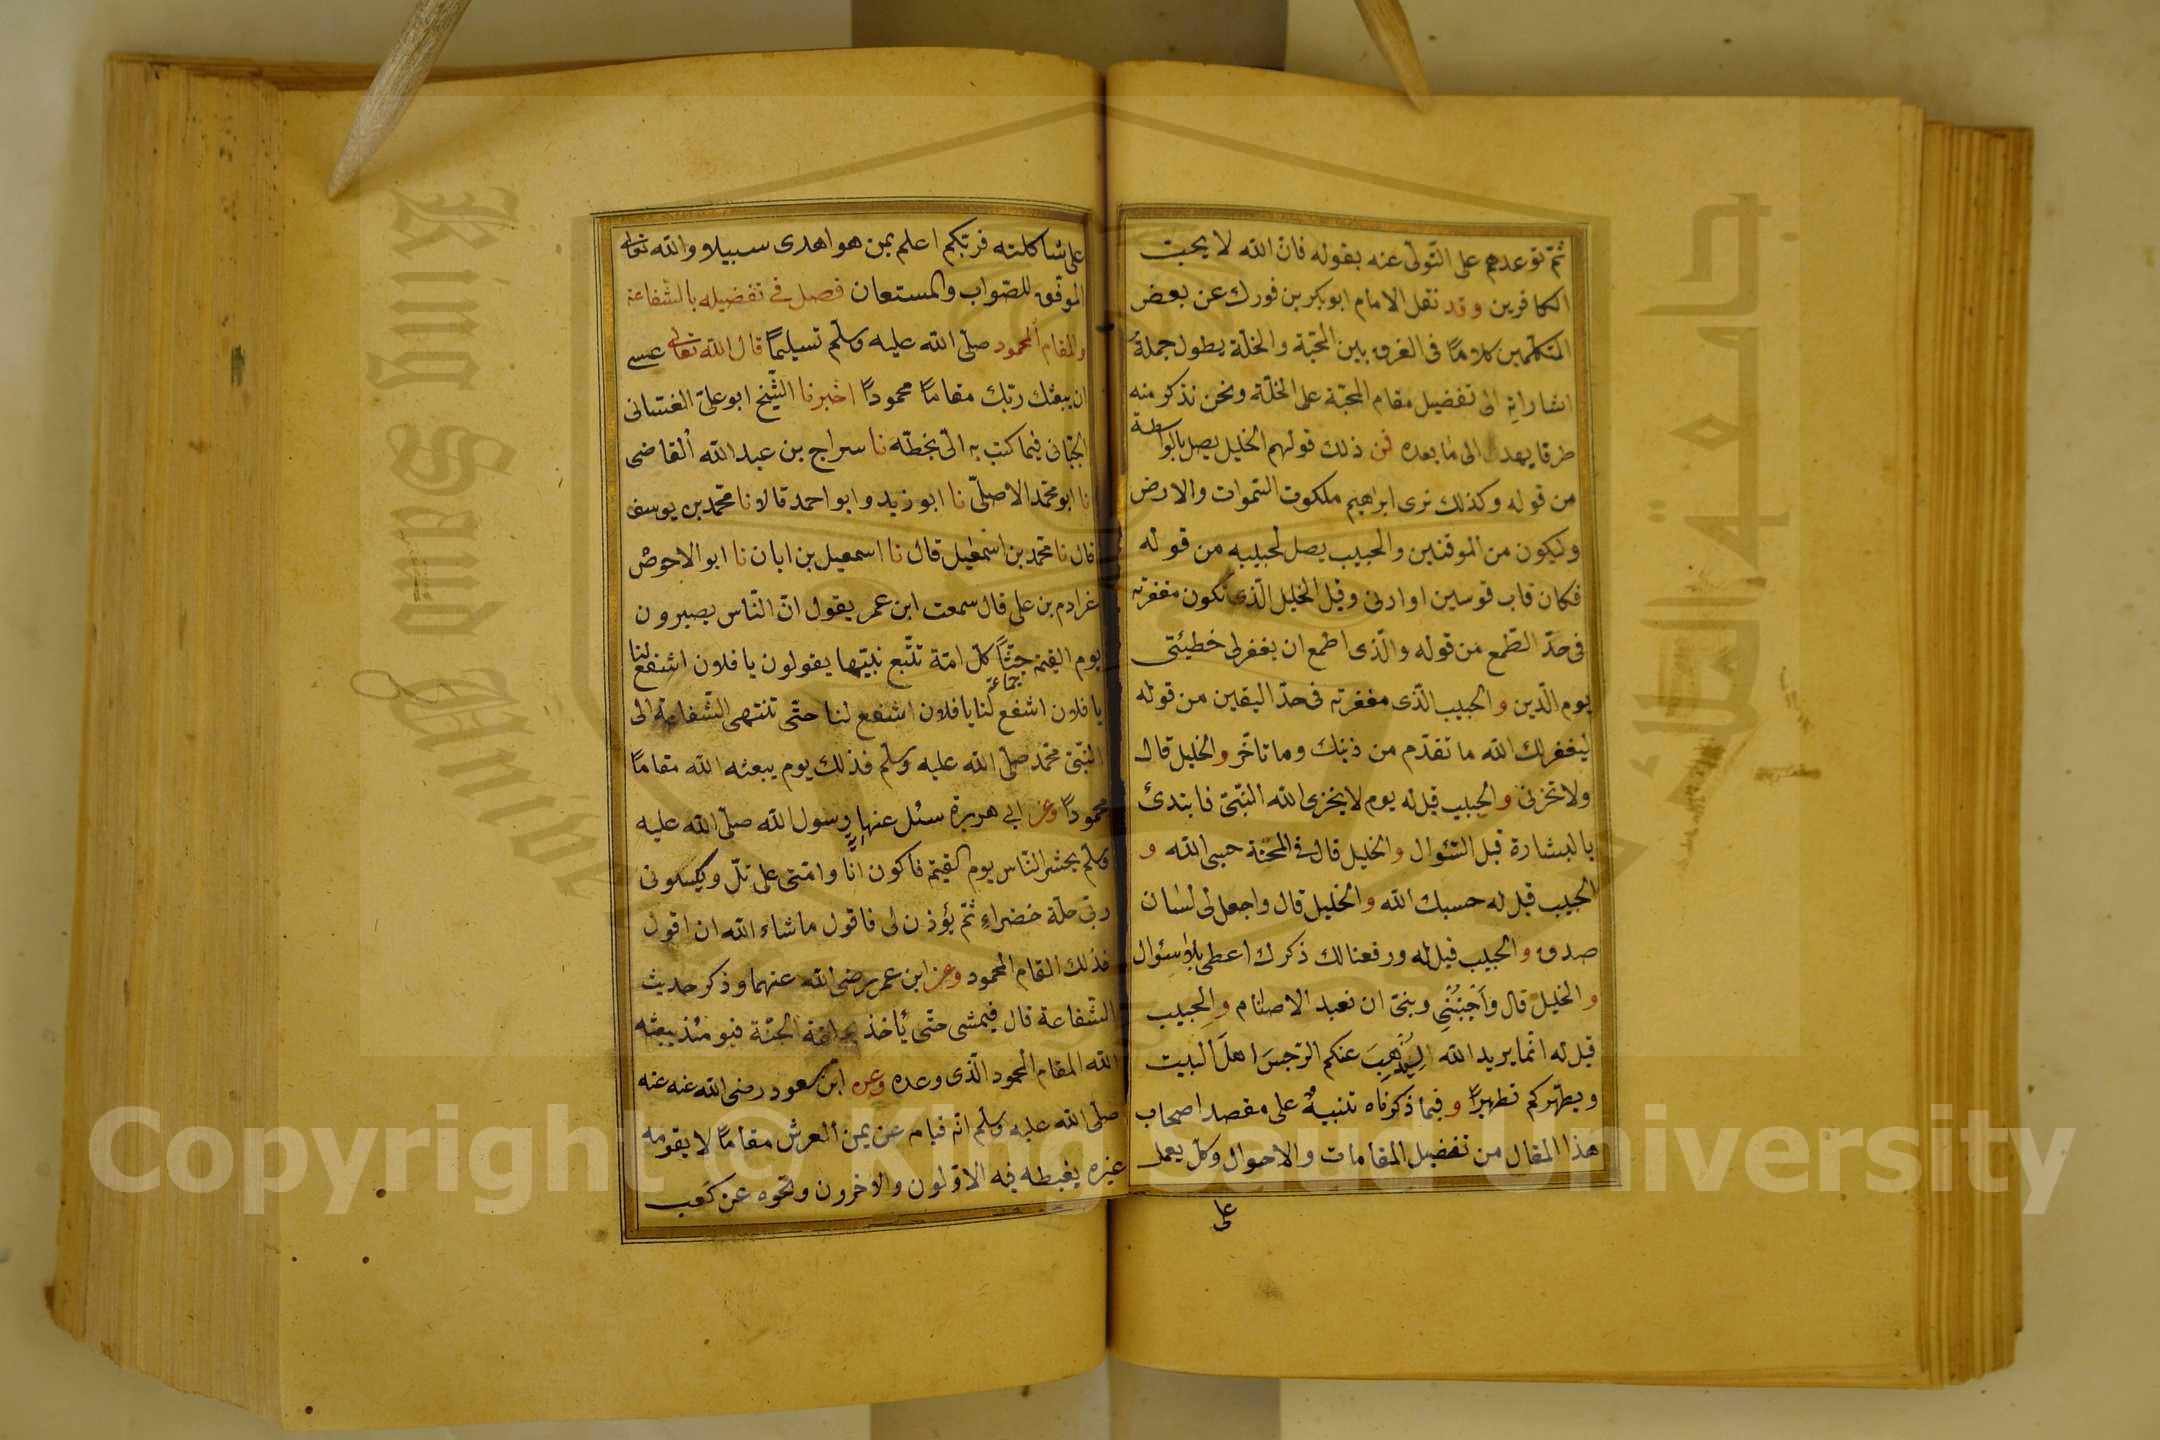 ثمّ توعدهم على التّولّى عنه بقوله فانّ الله لا يحبّ
الكافرين وقد نقل الامام ابوبكر بن فورك عن بعض
المتكلّمين كلامًا فى الفرق بين المحبّة والخلّة يطول جملةُ
اشاراتِه الى تفضيل مقام المحبّة على الخلّة ونحن نذكر منه
طرقا يهدى الى ما بعده فمن ذلك قولهم الخليل يصل بالواسطة
من قوله وكذلك نرى ابراهيم ملكوت السّموات والارض
وليكون من الموقنين والحبيب يصل لحبيبه من قوله
فكان قاب قوسين او ادنى وقيل الخليل الّذى تكون مغفرته
فى حدّ الطّمع من قوله والّذى اطمع ان يغفر لى خطيئتى
يوم الدّين والحبيب الّذى مغفرته فى حدّ اليقين من قوله
ليغفر لك الله ما تقدّم من ذنبك وما تاخّر والخليل قال
ولا تخزنى والحبيب قيل له يوم لا يخزى الله النّبىّ فابتدئ
بالبشارة قبل السّئوال والخليل قال فى المحنة حسبى الله و
الحبيب قيل له حسبك الله والخليل قال واجعل لى لسان
صدق والحبيب قيل له ورفعنا لك ذكرك اعطى بلا سئوال
والخليل قال وَاجْنُبْنِى وبنىّ ان نعبد الاصنام والحبيب
قيل له انّما يريد الله لِيُذْهِبَ عنكم الرّجسَ اهلَ البيت
ويطهّركم تطهيرًا وفيما ذكرناه تنبيهٌ على مقصد اصحاب
هذا المقال من تفضيل المقامات والاحوال وكلّ يعمل
على
على شاكلته فربّكم اعلم بمن هو اهدى سبيلا والله تعالى
الموفّق للصّواب والمستعان فصل فى تفضيله بالشّفاعة
والمقام المحمود صلّى الله عليه وسلّم تسليمًا قال الله تعالى عسى
ان يبعثك ربّك مقامًا محمودًا اخبرنا الشّيخ ابو علىّ الغسّانى
الجيّانى فيما كتب به الىّ بخطّه نا سراج بن عبد الله القاضى
نا ابو محمّد الاصيلىّ نا ابو زيد وابو احمد قالا نا محمّد بن يوسف
قال نا محمّد بن اسمعيل قال نا اسمعيل بن ابان نا ابو الاحوص
عن ادم بن على قال سمعت ابن عمر يقول انّ النّاس يصيرون
يوم القيمة جثًّا كلّ امّة تتّبع نبيّها يقولون يا فلان اشفع لنا
جماعة
يا فلان اشفع لنا يا فلان اشفع لنا حتّى تنتهى الشّفاعة الى
النّبىّ محمّد صلّى الله عليه وسلّم فذلك يوم يبعثه الله مقامًا
محمودًا وعن ابى هريرة سئل عنها رسول الله صلّى الله عليه
وسلّم يحشر النّاس يوم القيمة فاكون انا وامّتى على تلّ ويكسونى
ربّى حلّة خضراءِ ثمّ يؤذن لى فاقول ما شاء الله ان اقول
فذلك المقام المحمود وعن ابن عمر رضى الله عنهما وذكر حديث
الشّفاعة قال فيمشى حتّى يأخذ بحلقة الجنّة فيومئذ يبعثه
الله المقام المحمود الّذى وعده وعن ابن مسعود رضى الله عنه عنه
صلّى الله عليه وسلّم انّه قيام عن يمين العرش مقامًا لا يقومه
غيره يغبطه فيه الاوّلون والاخرون ونحوه عن كعب
Copyright © King Saud University